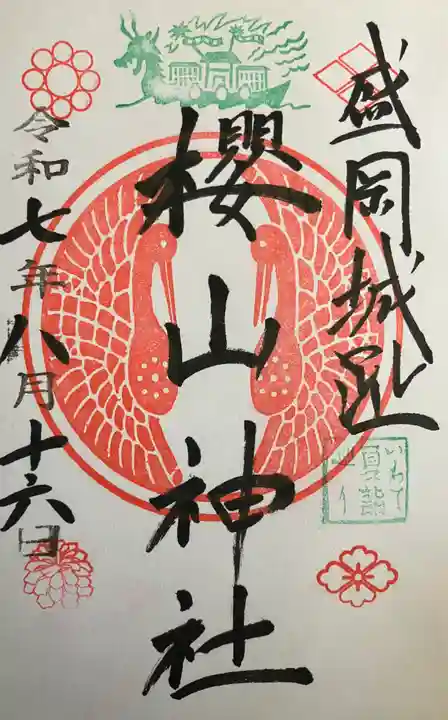 盛岡城跡
いわて
夏詣
櫻山神社
令和七年八月十六日